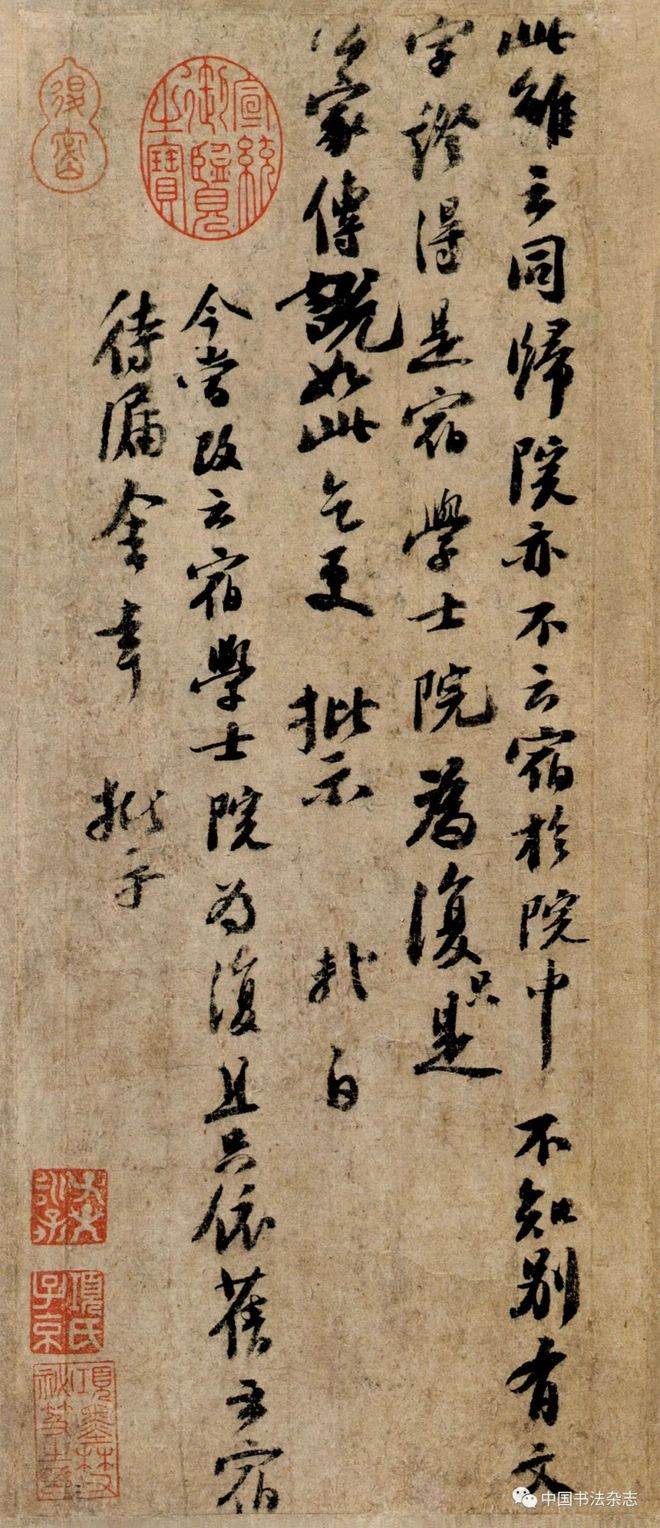 此雖云同歸院亦不云宿於院中不知別有文
字證得是宿學士院為復只是
公家傳說如此乞更 批示 軾白
今當改云宿學士院為復且只依舊云宿
待漏舍幸 批示
宣統御覽之寶
退密
項氏子京
項墨林父祕笈之印
中国书法杂志